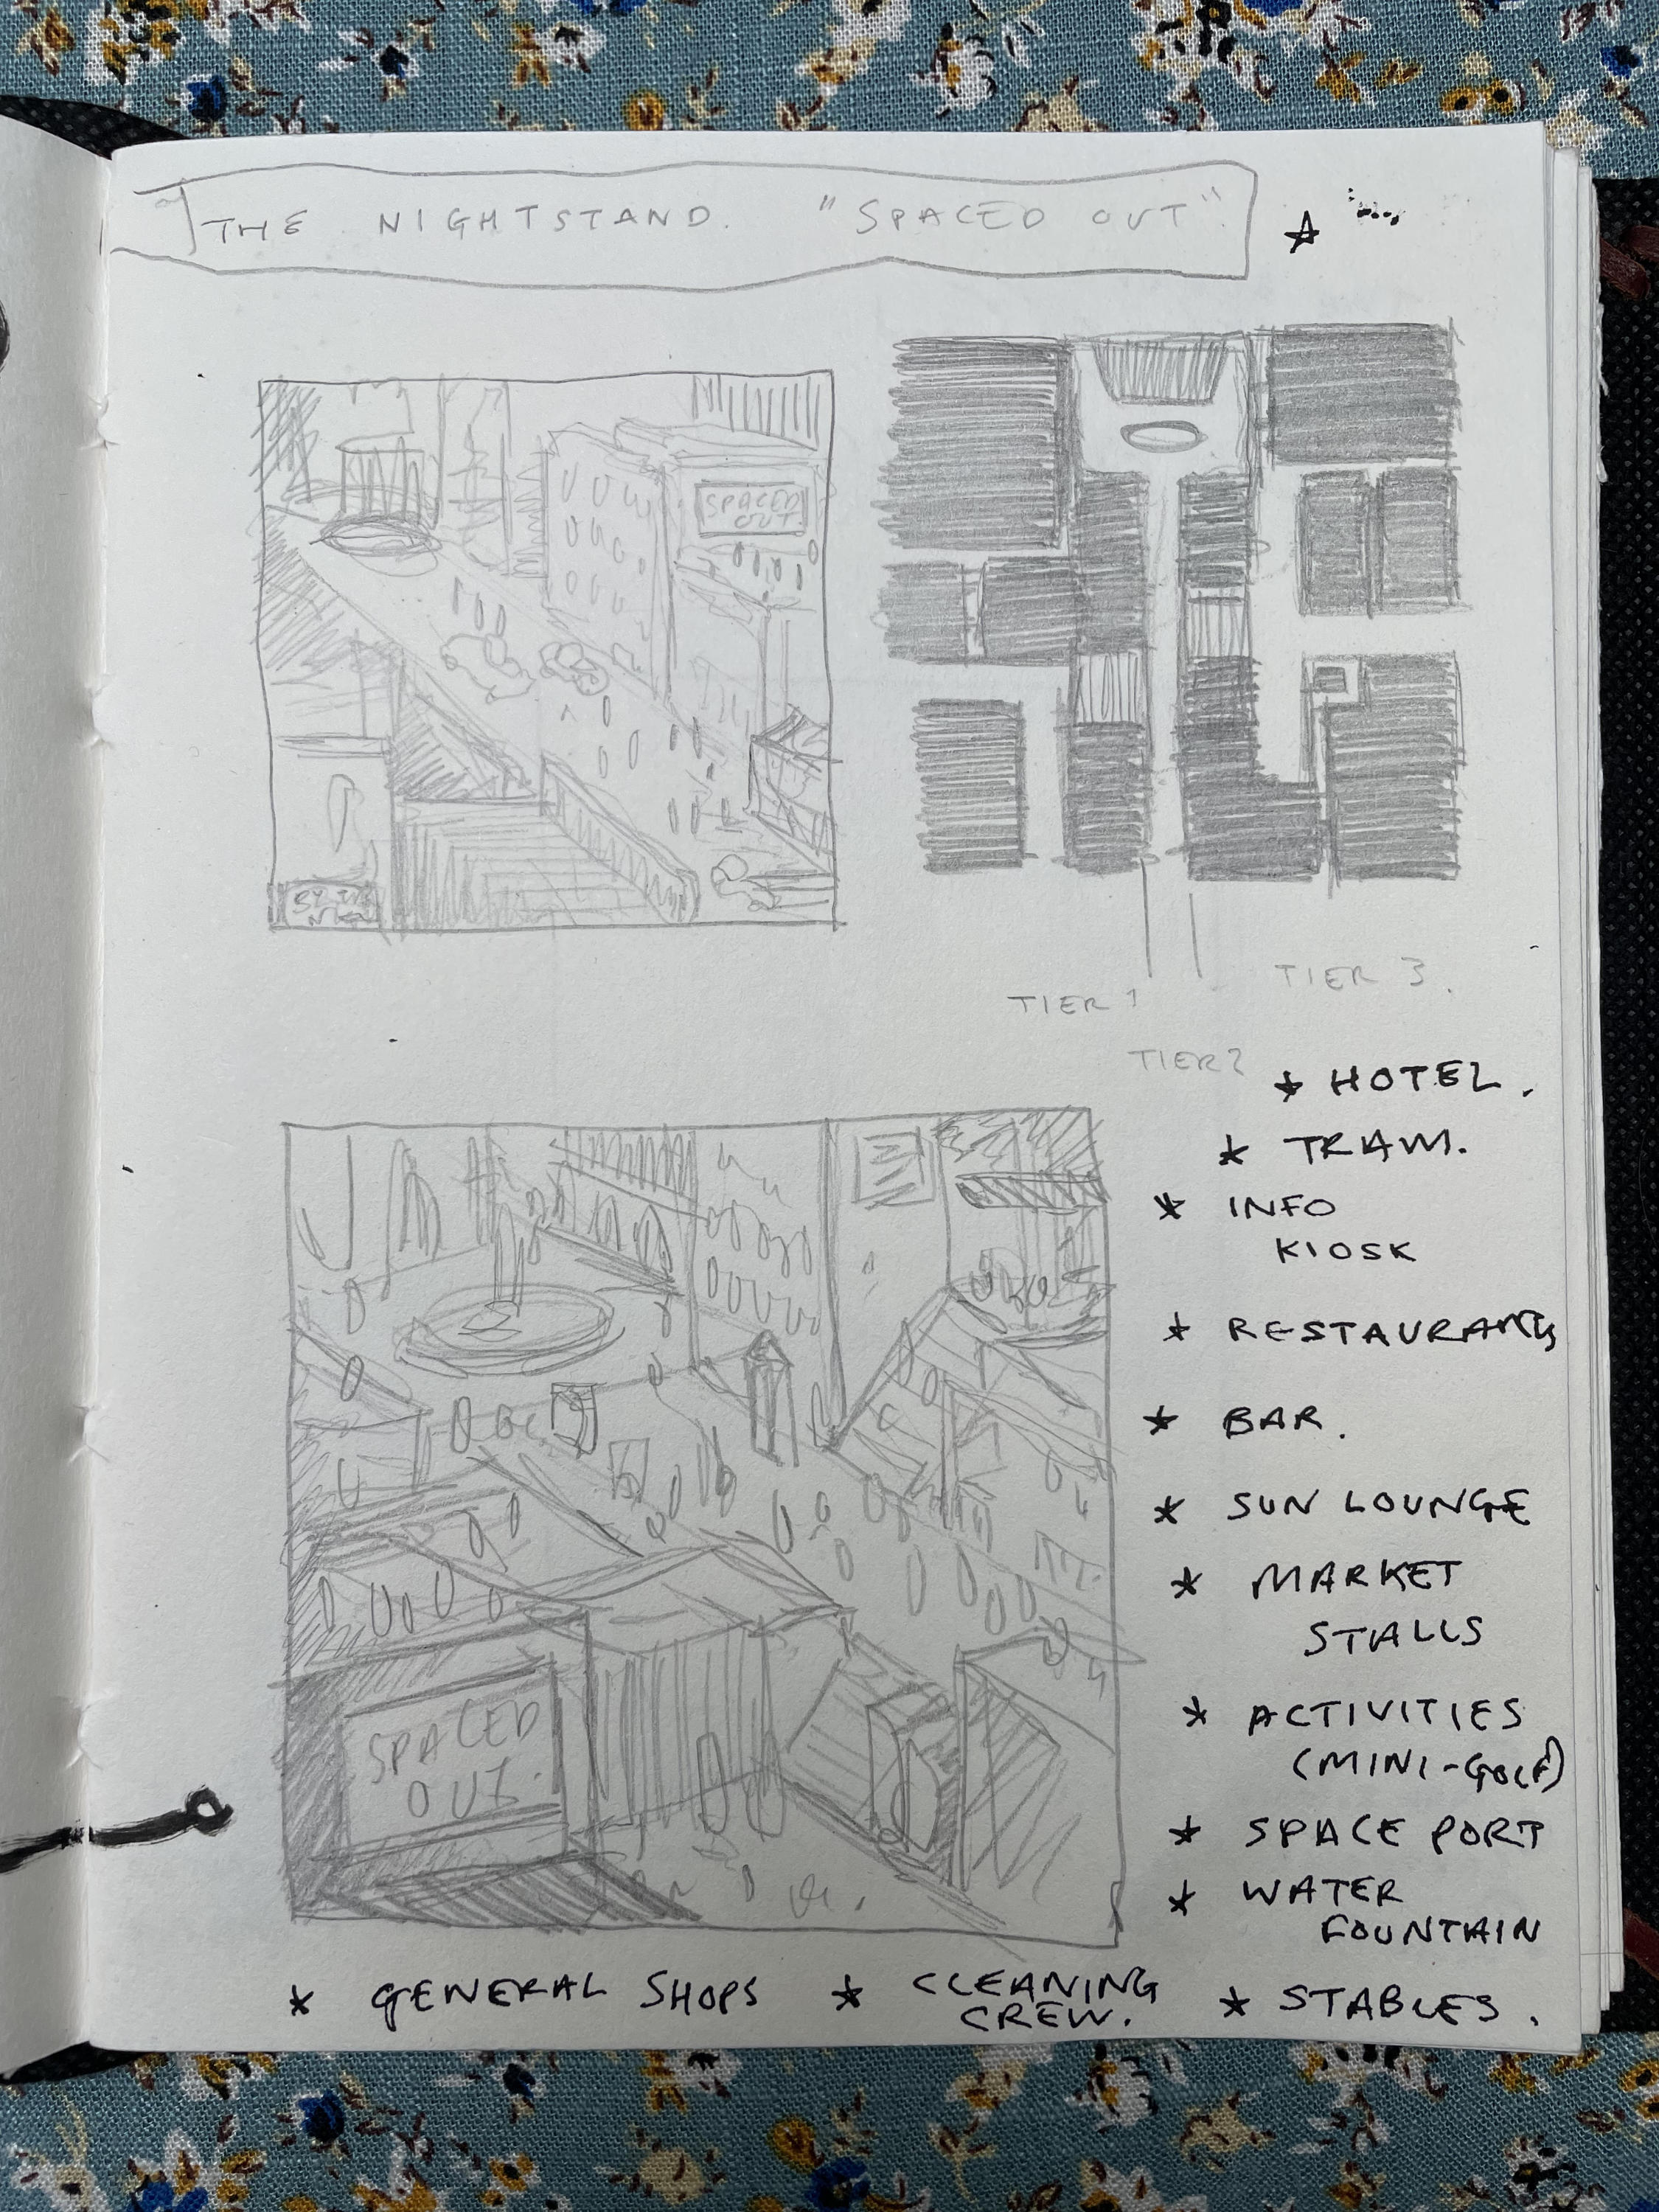 THE NIGHTSTAND. "SPACED OUT".
SPACED
OUT.
TIER 1
TIER 2
TIER 3.
* HOTEL.
* TRAM.
* INFO
KIOSK
* RESTAURANTS
* BAR.
* SUN LOUNGE
* MARKET
STALLS
* ACTIVITIES
(MINI-GOLF)
* SPACE PORT
* WATER
FOUNTAIN
SPACED
OUT.
* GENERAL SHOPS * CLEANING
CREW. * STABLES.